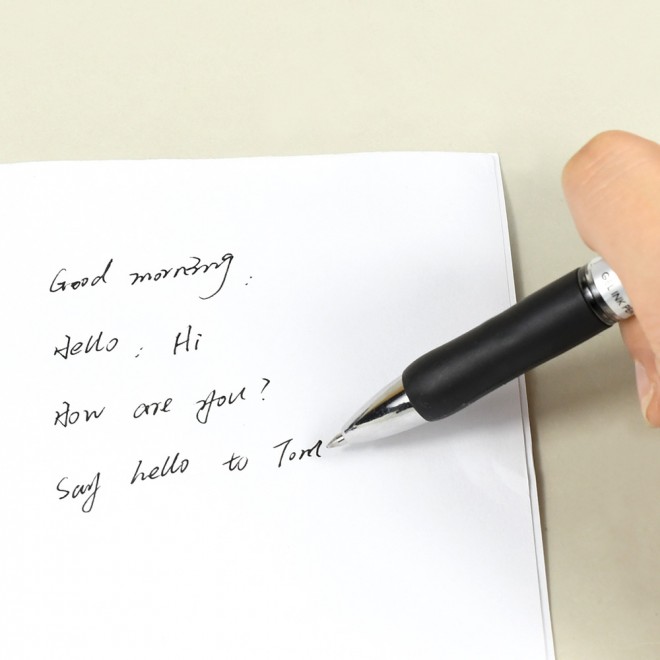 Good morning.
Hello : Hi
How are you?
Say hello to Tom